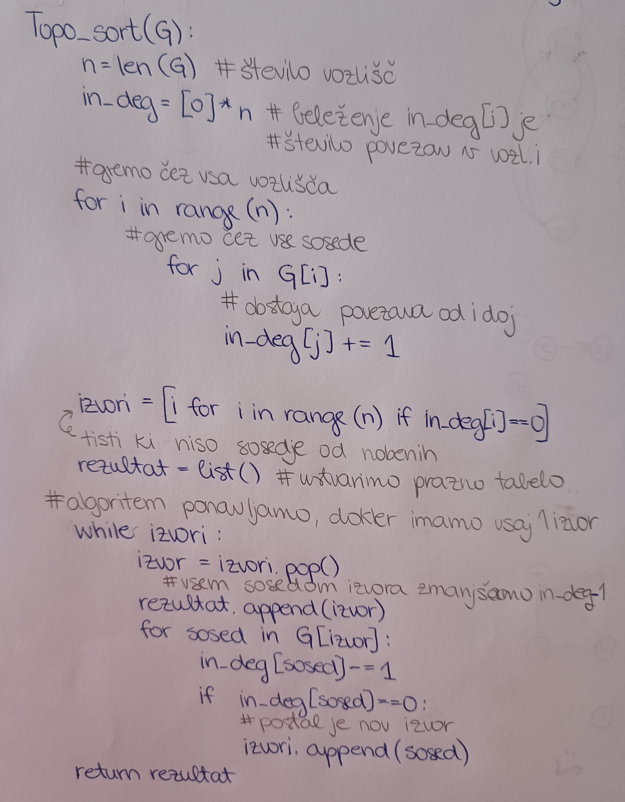 Topo_sort(G):
n=len(G) #število vozlišč
in_deg = [0]*n # beleženje in_deg[i] je
#število povezav v vozl.i
#gremo čez vsa vozlišča
for i in range(n):
#gremo čez vse sosede
for j in G[i]:
# obstaja povezava od i do j
in_deg[j] += 1
izvori = [i for i in range(n) if in_deg[i]==0]
tisti ki niso sosedje od nobenih
rezultat = list() #ustvarimo prazno tabelo
#algoritem ponavljamo, dokler imamo vsaj 1 izvor
while izvori:
izvor = izvori.pop()
#vsem sosedom izvora zmanjšamo in-deg-1
rezultat.append(izvor)
for sosed in G[izvor]:
in_deg[sosed]-=1
if in_deg[sosed]==0:
#postal je nov izvor
izvori.append(sosed)
return rezultat